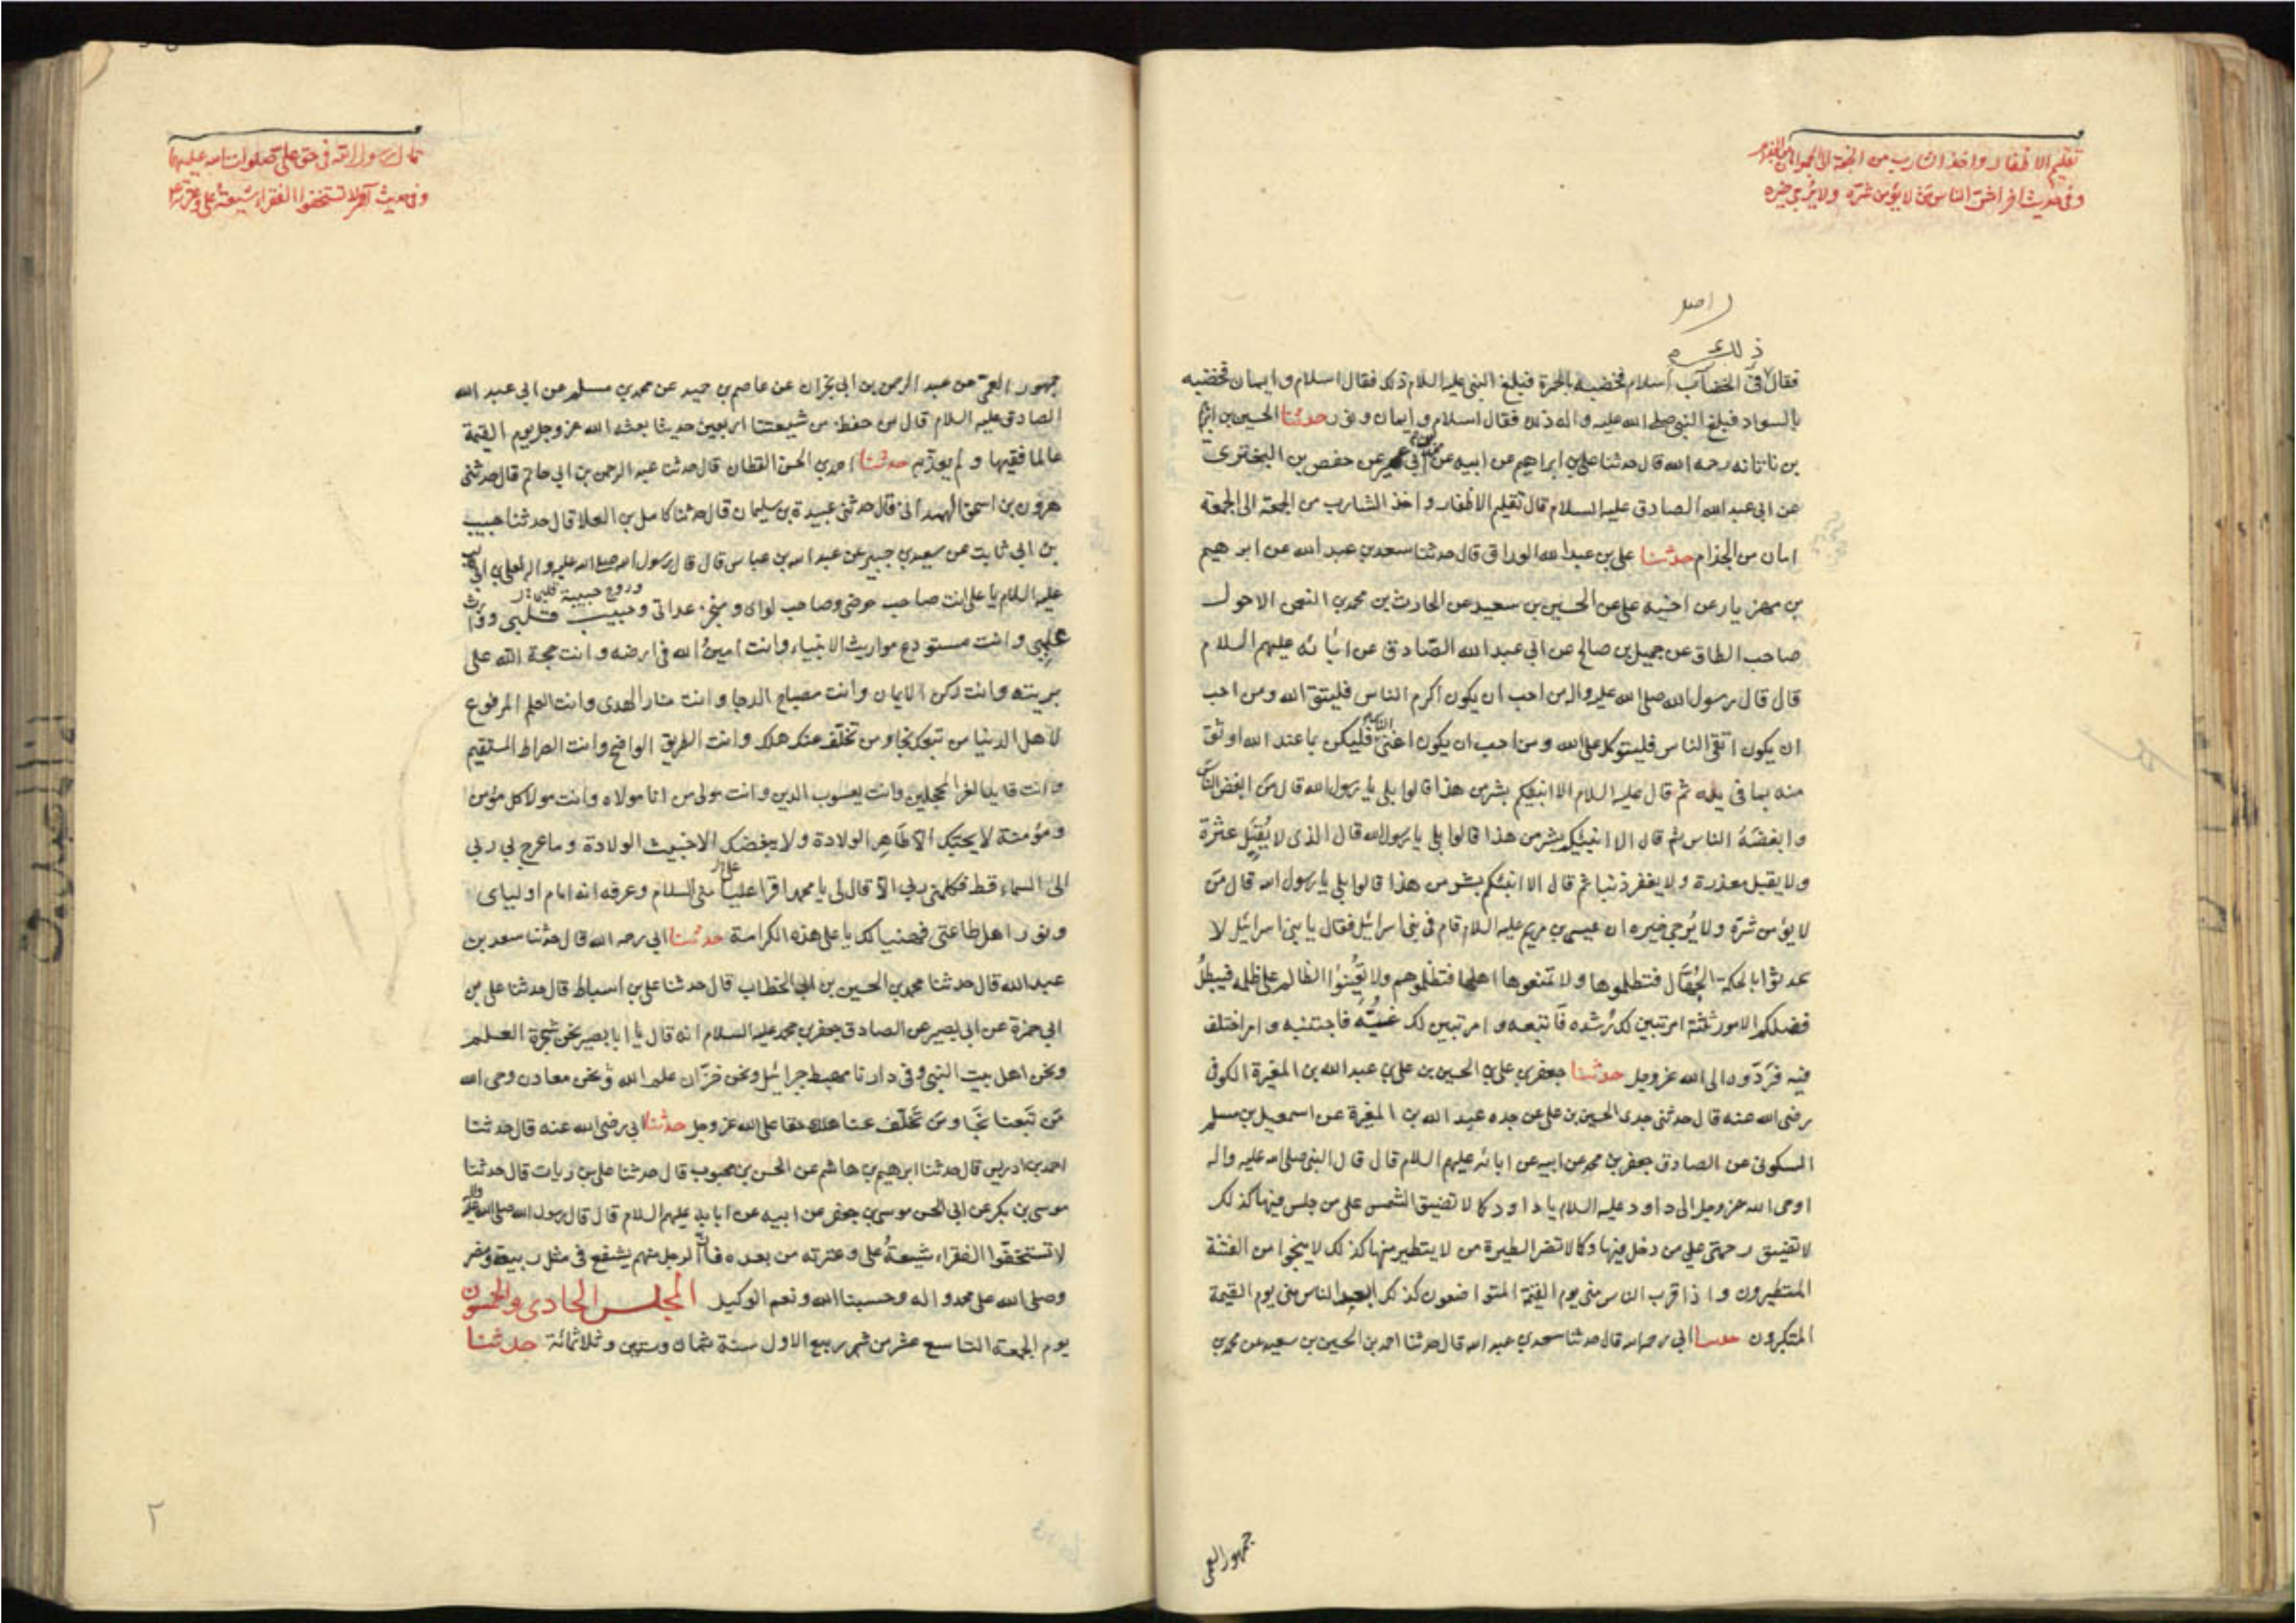 تقليم الاظفار واخذ الشارب من الجمعة الى الجمعة امان من الجذام
وفي حديث اخر اشر الناس من لا يؤمن شره ولا يرجى خيره
ذلك
فقال في الخضاب اسلام فخضبه بالحمرة فبلغ النبي عليه السلام ذلك فقال اسلام و ايمان فخضبه
بالسواد فبلغ النبي صلى الله عليه واله ذلك فقال اسلام و ايمان و نور حدثنا الحسين بن ابرهيم
بن ناتانه رحمه الله قال حدثنا علي بن ابراهيم عن ابيه عن محمد بن ابي عمير عن حفص بن البختري
عن ابى عبد الله الصادق عليه السلام قال تقليم الاظفار واخذ الشارب من الجمعة الى الجمعة
امان من الجذام حدثنا علي بن عبد الله الوراق قال حدثنا سعد بن عبد الله عن ابرهيم
بن مهزيار عن اخيه علي عن الحسين بن سعيد عن الحارث بن محمد بن النعمن الاحول
صاحب الطاق عن جميل بن صالح عن ابى عبد الله الصادق عن ابائه عليهم السلام
قال قال رسول الله صلى الله عليه واله من احب ان يكون اكرم الناس فليتق الله ومن احب
ان يكون اتقى الناس فليتوكل على الله ومن احب ان يكون اغنى الناس فليكن بما عند الله اوثق
منه بما في يده ثم قال عليه السلام الا انبئكم بشر من هذا قالوا بلى يا رسول الله قال من ابغض الناس
وابغضه الناس ثم قال الا انبئكم بشر من هذا قالوا بلى يا رسول الله قال الذى لا يقيل عثرة
ولا يقبل معذرة ولا يغفر ذنبا ثم قال الا انبئكم بشر من هذا قالوا بلى يا رسول الله قال من
لا يؤمن شره ولا يرجى خيره ان عيسى بن مريم عليه السلام قام في بني اسرائيل فقال يا بني اسرائيل لا
تحدثوا بالحكمة الجهال فتظلموها ولا تمنعوها اهلها فتظلموهم ولا تعينوا الظالم على ظلمه فيبطل
فضلكم الامور ثلثة امر تبين لك رشده فاتبعه و امر تبين لك غيه فاجتنبه و امر اختلف
فيه فردّوه الى الله عز وجل حدثنا جعفر بن علي بن الحسين بن علي بن عبد الله بن المغيرة الكوفي
رضى الله عنه قال حدثنى جدى الحسين بن علي عن جده عبد الله بن المغيرة عن اسمعيل بن مسلم
السكوني عن الصادق جعفر بن محمد عن ابيه عن ابائه عليهم السلام قال قال النبي صلى الله عليه واله
اوحى الله عز وجل الى داود عليه السلام يا داود كما لا تضيق الشمس على من جلس فيها كذلك
لا تضيق رحمتي على من دخل فيها وكما لا تضر الطيرة من لا يتطير منها كذلك لا ينجوا من الفتنة
المتطيرون واذا قرب الناس مني يوم القيمة المتواضعون كذلك ابعد الناس مني يوم القيمة
المتكبرون حدثنا ابي رحمه الله قال حدثنا سعد بن عبد الله قال حدثنا احمد بن الحسين بن سعيد عن محمد بن
جمهور العمى
قال رسول الله في حق علي صلوات الله عليهما
وفي حديث اخر لا تستخفوا الفقراء شيعة علي وعترته
جمهور العمى عن عبد الرحمن بن ابي نجران عن عاصم بن حميد عن محمد بن مسلم عن ابى عبد الله
الصادق عليه السلام قال من حفظ من شيعتنا اربعين حديثا بعثه الله عز وجل يوم القيمة
عالما فقيها و لم يعذبه حدثنا احمد بن الحسن القطان قال حدثنا عبد الرحمن بن ابي حاتم قال حدثني
هرون بن اسحق الهمداني قال حدثني عبيدة بن سليمان قال حدثنا كامل بن العلا قال حدثنا حبيب
بن ابي ثابت عن سعيد بن جبير عن عبد الله بن عباس قال قال رسول الله صلى الله عليه واله لعلي بن ابي طالب
عليه السلام يا علي انت صاحب حوضى وصاحب لوائ ومنجز عداتى وحبيب قلبى ووارث
علمي وانت مستودع مواريث الانبياء وانت امين الله في ارضه وانت حجة الله على
بريته وانت ركن الايمان وانت مصباح الدجا وانت منار الهدى وانت العلم المرفوع
لاهل الدنيا من تبعك نجا ومن تخلف عنك هلك وانت الطريق الواضح وانت الصراط المستقيم
وانت قايد الغر المحجلين وانت يعسوب الدين وانت مولى من انا مولاه وانت مولا كل مؤمن
ومؤمنة لا يحبك الا طاهر الولادة ولا يبغضك الا خبيث الولادة وما عرج بي ربي
الى السماء قط فكلمني ربي الا قال لى يا محمد اقرا عليا مني السلام وعرفه انه امام اوليائ
ونور اهل طاعتى فهنيا لك يا علي هذه الكرامة حدثنا ابي رحمه الله قال حدثنا سعد بن
عبد الله قال حدثنا محمد بن الحسين بن ابي الخطاب قال حدثنا علي بن اسباط قال حدثنا علي بن
ابي حمزة عن ابي بصير عن الصادق جعفر بن محمد عليه السلام انه قال يا ابا بصير نحن شجرة العلم
ونحن اهل بيت النبي وفي دارنا مهبط جبرائيل ونحن خزّان علم الله ونحن معادن وحى الله
من تبعنا نجا ومن تخلف عنا هلك حقا على الله عز وجل حدثنا ابي رضى الله عنه قال حدثنا
احمد بن ادريس قال حدثنا ابرهيم بن هاشم عن الحسن بن محبوب قال حدثنا علي بن رياب قال حدثنا
موسى بن بكر عن ابى الحسن موسى بن جعفر عن ابيه عن ابائه عليهم السلام قال قال رسول الله صلى الله عليه واله
لا تستخفوا الفقراء شيعة علي وعترته من بعده فان الرجل منهم يشفع في مثل ربيعة ومضر
وصلى الله على محمد واله وحسبنا الله ونعم الوكيل المجلس الحادي والخمسون
يوم الجمعة التاسع عشر من شهر ربيع الاول سنة ثمان وستين وثلاثمائة حدثنا
٢